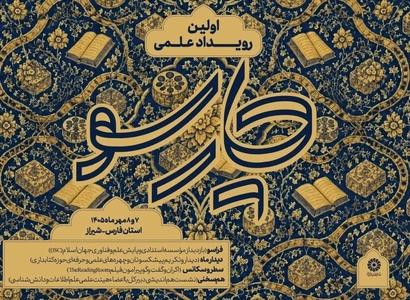 اولین
رویداد علمی
چارسو
۷ و ۸ مهر ماه ۱۴۰۵
استان فارس - شیراز
فراسو (بازدید از مؤسسه استنادی و پایش علم و فناوری جهان اسلام (ISC))
دیدار ماه (دیدار و تکریم پیشکسوتان و چهره‌های علمی و حرفه‌ای حوزه کتابداری)
سطر و سکانس (اکران و گفت و گو پیرامون فیلم The Reading Room)
هم‌سخنی (نشست هم‌اندیشی دبیر کل با اعضاء هیئت علمی علم اطلاعات و دانش شناسی)